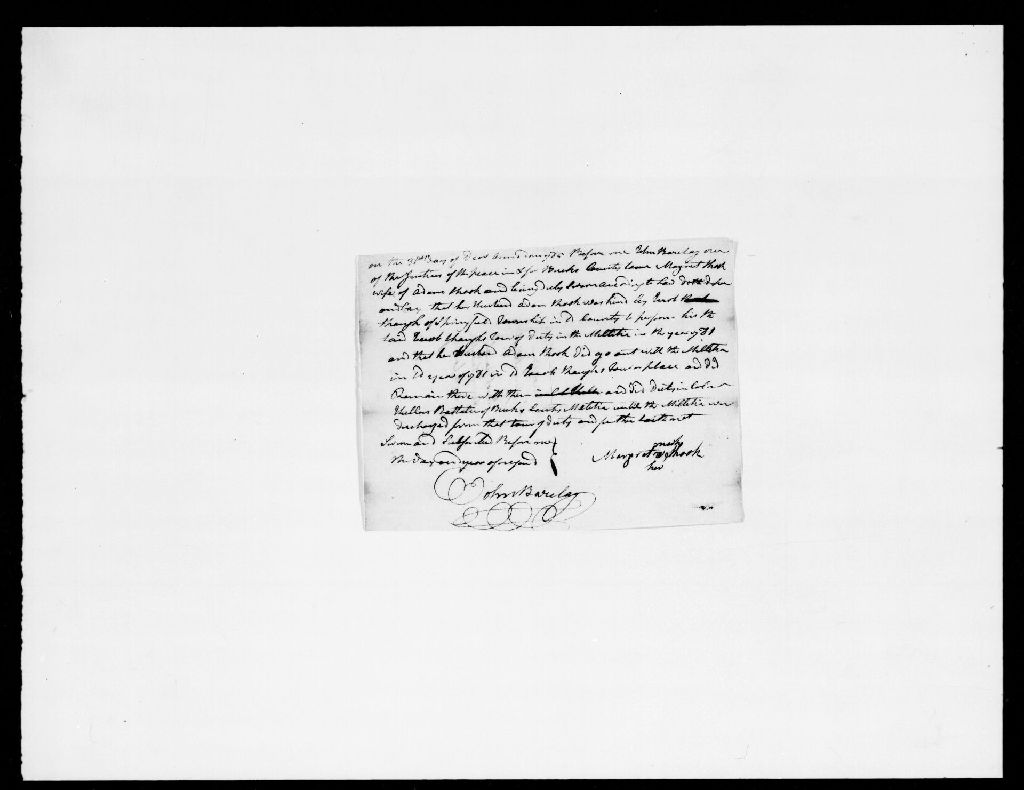 on the Day of Decr Before me John Barclay one
of the Justices of the peace in & for Bucks County came Margret Shook
wife of Adam Shook and being duly Sworn according to law doth depose
and Say that her Husband Adam Shook was hired by Enoch
of Springfield Township in Sd County to perform his the
Said Tour of Duty in the Militia in the year 1781
and that her Husband Adam Shook Did go out with the Militia
in Sd year of 1781 in Sd Enoch Tour or place and Did
Remain there with them and Did Duty in
Battalion of Bucks County Militia until the Militia were
discharged from that tour of duty and further Saith not
Sworn and Subscribed Before me
the Day and year aforesaid
mark
Margret Shook
her
John Barclay